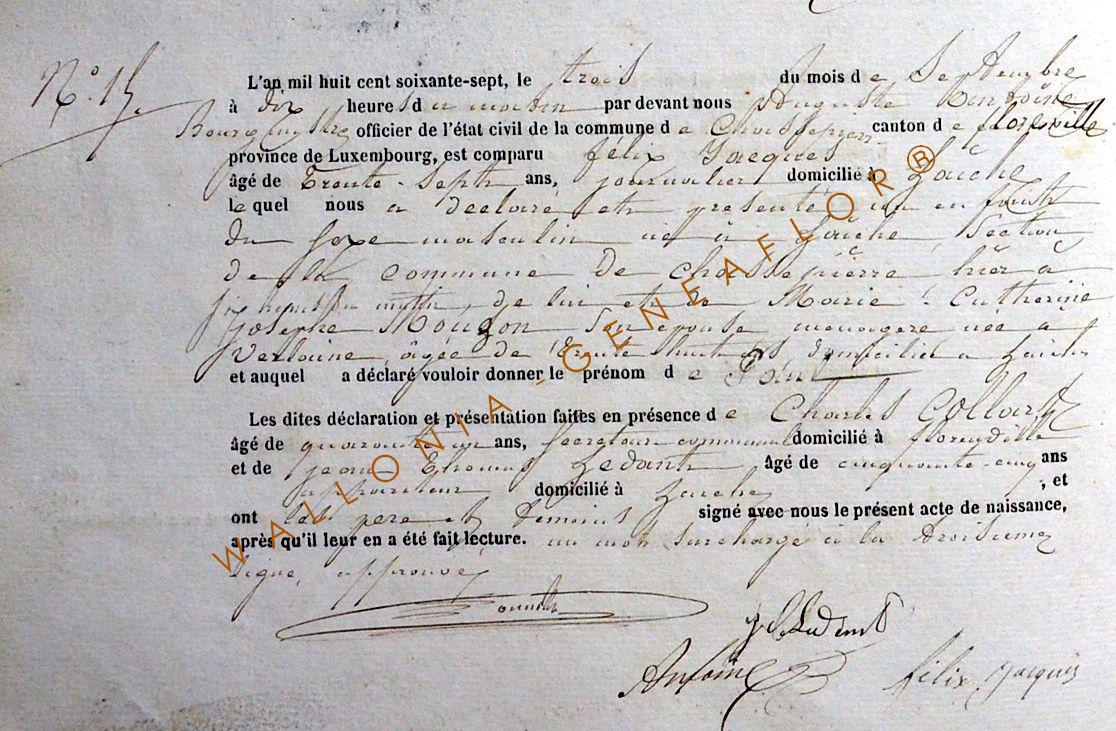 N° 15
L'an mil huit cent soixante-sept, le trois du mois de Septembre
à dix heures du matin par devant nous Auguste Antoine
Bourgmestre officier de l'état civil de la commune de Chassepierre canton de florenville
province de Luxembourg, est comparu félix Jacques
âgé de Trente-Sept ans, journalier domicilié à Laiche
le quel nous a déclaré et présenté un enfant
du sexe masculin né à Laiche, Section
de la commune de Chassepierre hier à
heures du matin, de lui et de Marie-Catherine
Josephe son épouse ménagère née à
Verlaine, âgée de Trente huit ans, domiciliée à Laiche
et auquel a déclaré vouloir donner le prénom de Paul
Les dites déclaration et présentation faites en présence de Charles Collard
âgé de quarante un ans, Secrétaire communal domicilié à florenville
et de jean Thomas Ledant âgé de cinquante-cinq ans
appariteur domicilié à Laiche, et
ont les père et témoins signé avec nous le présent acte de naissance,
après qu'il leur en a été fait lecture. un mot surchargé à la troisième
ligne, approuvé
J T Ledent
Antoine félix Jacques
WALLONIA-GENEAFLOR®